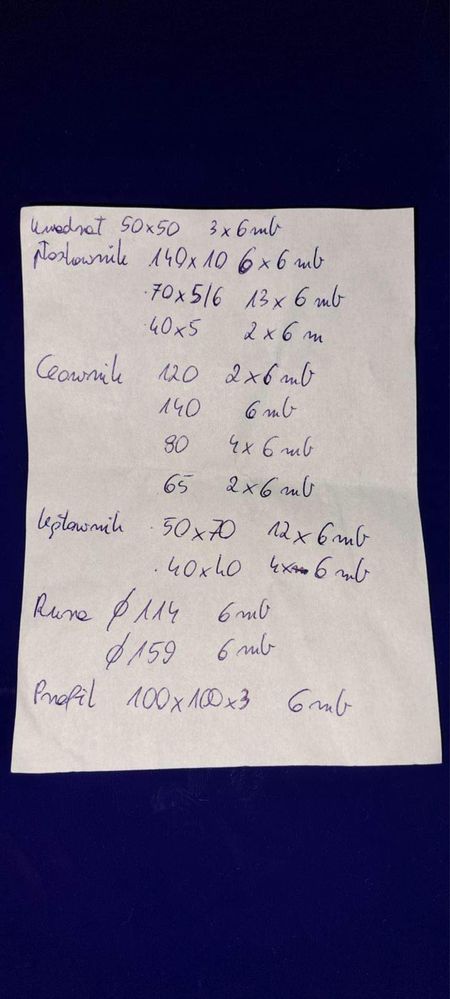 kwadrat 50x50 3x6mb
płaskownik 140x10 6x6 mb
.70x5/6 13x6 mb
.40x5 2x6 m
Ceownik 120 2x6 mb
140 6 mb
80 4x6 mb
65 2x6 mb
kątownik .50x70 12x6mb
.40x40 4x 6 mb
Rura ϕ114 6mb
ϕ159 6 mb
Profil 100x100x3 6mb